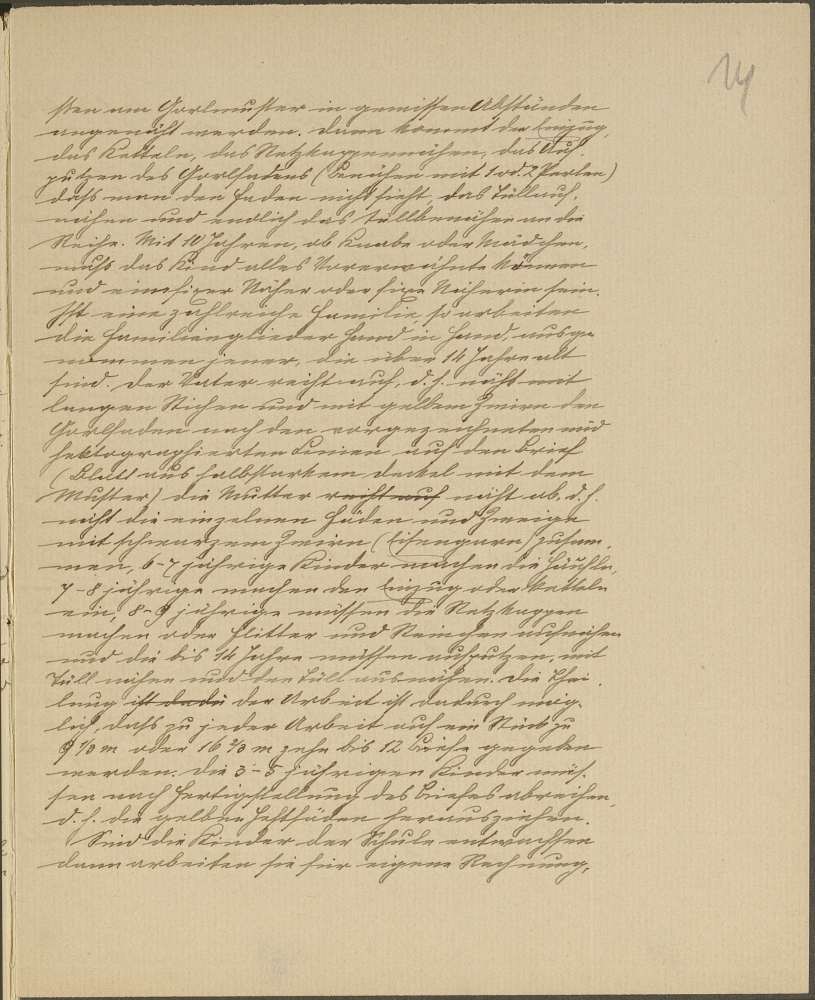 24
sten am Gorlmuster in gewissen Abständen
angenäht werden. Dann kommt der Einzug,
das Ketteln, das Netzkappenmachen, das Auf-
putzen des Gorlfadens (Benähen mit 1 od. 2 Perlen)
dass man den Faden nicht sieht, das Tüllauf-
nähen und endlich das Tüllbenähen an die
Reihe. Mit 10 Jahren, ob Knabe oder Mädchen,
muss das Kind alles Vorerwähnte können
und ein fixer Näher oder fixe Näherin sein.
Ist eine zahlreiche Familie, so arbeiten
die Familienglieder Hand in Hand, ausge-
nommen jener, die über 14 Jahre alt
sind. Der Vater reiht auf, d.h. näht mit
langen Stichen und mit gelbem Zwirn den
Gorlfaden nach den vorgezeichneten und
hektographierten Linien auf den Brief
(Blatt aus halbstarkem Deckel mit dem
Muster) die Mutter reiht auf näht ab, d.h.
näht die einzelnen Fäden und Zweige
mit schwarzem Zwirn (Eisengarn) zusam-
men, 6-7 jährige Kinder machen die
7-8 jährige machen den Einzug oder Ketteln
ein, 8-9 jährige müssen die Netzkappen
machen oder Flitter und Steinchen aufnähen
und die bis 14 Jahre müssen aufputzen, mit
Tüll nähen und den Tüll ausnähen. Die Thei-
lung ist dadu der Arbeit ist dadurch mög-
lich, dass zu jeder Arbeit auf ein Stück zu
9 1/3 m oder 16 2/3 m zehn bis 12 Briefe gegeben
werden. Die 3-5 jährigen Kinder müs-
sen nach Fertigstellung des Briefes abreihen,
d.h. die gelben Heftfäden herausziehen.
Sind die Kinder der Schule entwachsen
dann arbeiten sie für eigene Rechnung,